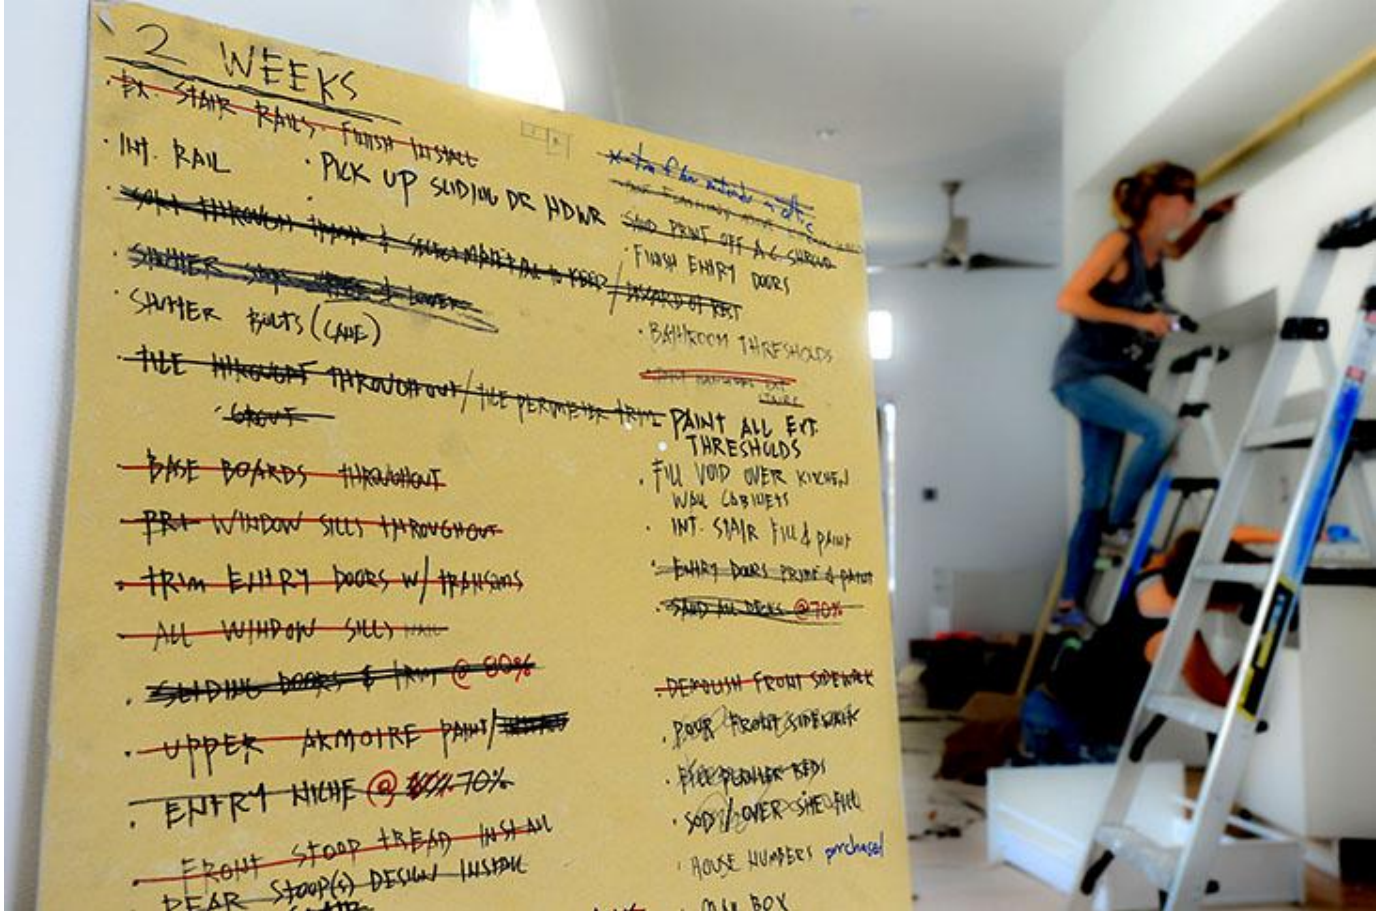 2 WEEKS
· EX. STAIR RAILS · FINISH INSTALL
· INT. RAIL
· PICK UP SLIDING DR HDWR
SORT THROUGH & SELECT MATERIAL TO KEEP / DISCARD OF REST
SHUTTER STOPS & LOWER
· SHUTTER BOLTS (CANE)
· TILE THROUGHOUT / TILE PERIMETER TRIM
· GROUT
· BASE BOARDS THROUGHOUT
· WINDOW SILLS THROUGHOUT
· TRIM ENTRY DOORS W/ TRANSOMS
· ALL WINDOW SILLS
· SLIDING DOORS & TRIM @ 80%
· UPPER ARMOIRE PAINT/
· ENTRY NICHE @ 70%
· FRONT STOOP TREAD INSTALL
REAR STOOP(S) DESIGN INSTALL
SAND PAINT OFF A.C. SHROUD
· FINISH ENTRY DOORS
· BATHROOM THRESHOLDS
· PAINT ALL EXT.
THRESHOLDS
· FILL VOID OVER KITCHEN
WALL CABINETS
· INT. STAIR FILL & PAINT
· ENTRY DOORS PRIME & PAINT
· SAND ALL DECKS @ 70%
· DEMOLISH FRONT SIDEWALK
· POUR FRONT SIDEWALK
· FILL PLANTER BEDS
· SOD / OVER SITE FILL
· HOUSE NUMBERS purchased
· MAIL BOX